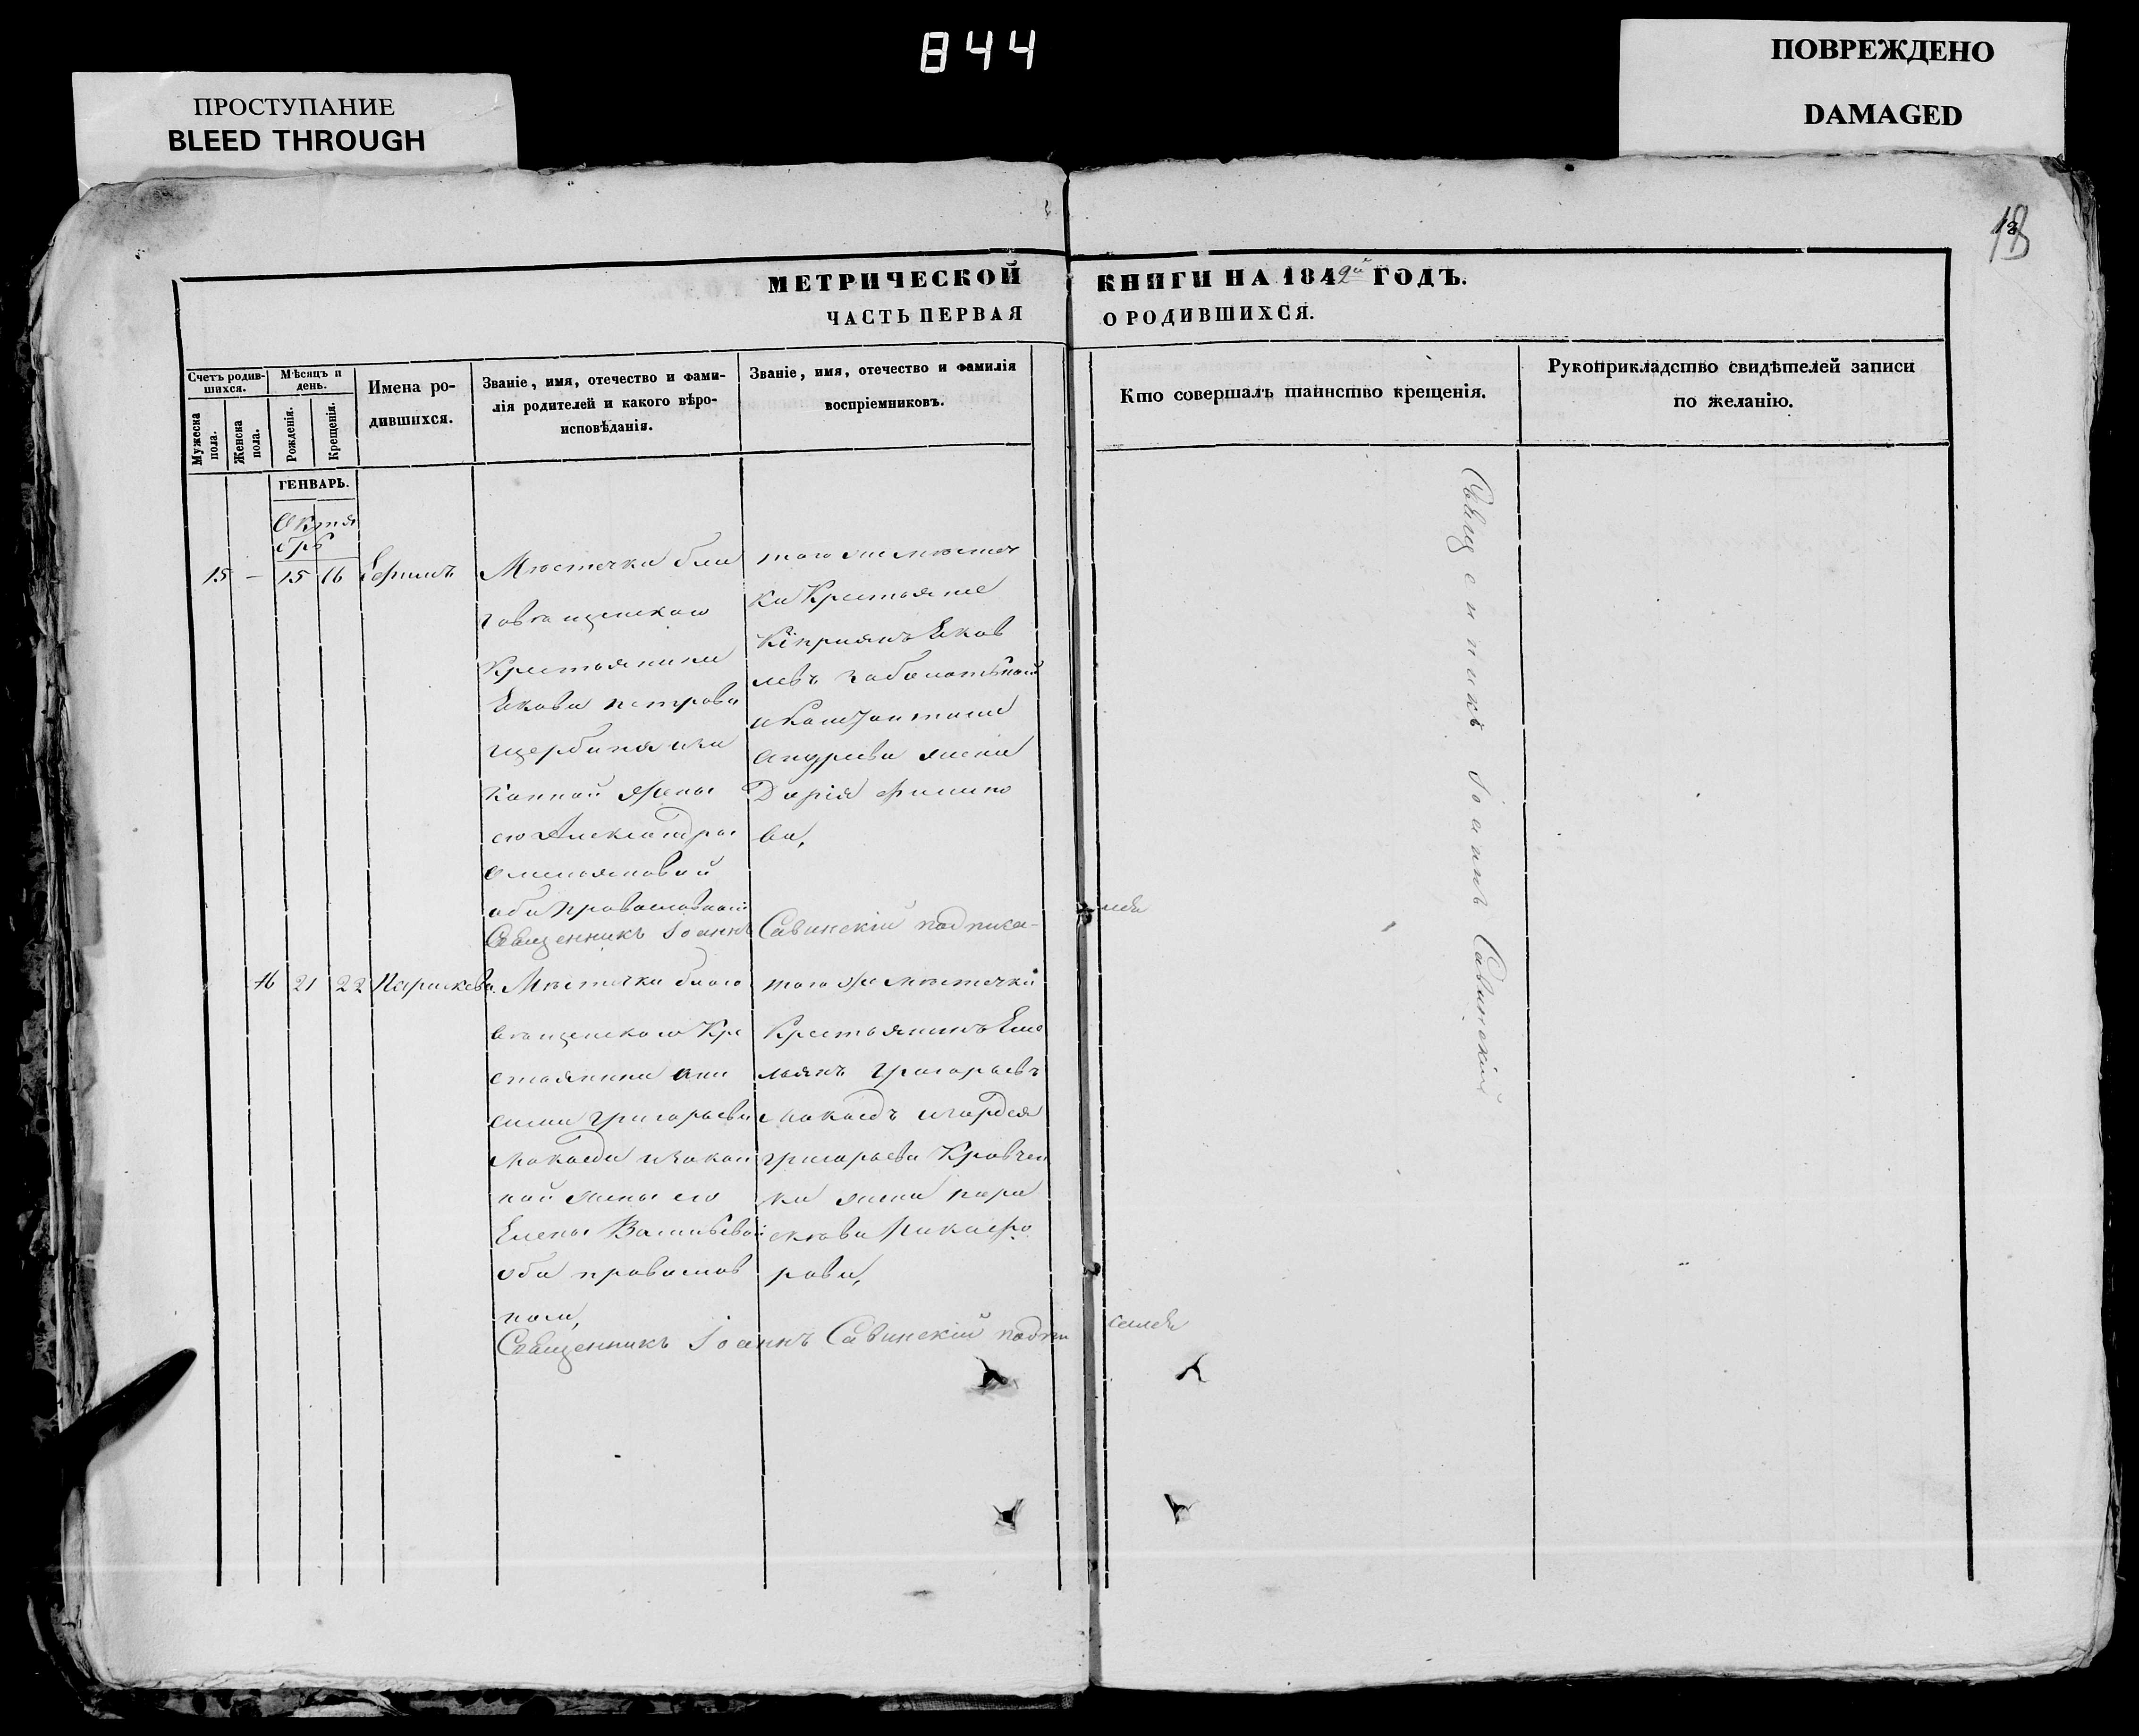 844
ПРОСТУПАНИЕ
BLEED THROUGH
ПОВРЕЖДЕНО
DAMAGED
18
МЕТРИЧЕСКОЙ КНИГИ НА 1849й ГОДЪ.
ЧАСТЬ ПЕРВАЯ О РОДИВШИХСЯ.
Счетъ родив-
шихся.
Мужеска
пола.
Женска
пола.
Мѣсяцъ и
день.
Рожденія.
Крещенія.
Имена ро-
дившихся.
Званіе, имя, отечество и фами-
лія родителей и какого вѣро-
исповѣданія.
Званіе, имя, отечество и фамилія
воспріемниковъ.
Кто совершалъ таинство крещенія.
Рукоприкладство свидѣтелей записи
по желанію.
ГЕНВАРЬ.
Октя
брь
15 - 15 16 Ефимъ
Мѣстечка бла
говѣщенского
Крестьянина
Якова петрова
щербина иза
конной жены
его Александры
Омельяновой
оба православные
того же местеч
ка Крестьяне
Кіприянъ Яков
левъ
Андреева жена
Дарія Филипо
ва,
Священникъ Іоаннъ Савинскій подписался
16 21 22 Параскева
Мѣстечка благо
вѣщенского Кре
стьянина Они
сима Григорьева
Макоеда изакон
ной жены его
Елены Васильевой
оба православ
ного,
того же мѣстечка
Крестьянинъ Еме
льянъ Григорьевъ
Макоедъ
Григорьева Кравчен
ка жена пара
скева Никифо
рова,
Священникъ Іоаннъ Савинскій подписался
Священникъ Іоаннъ Савинскій